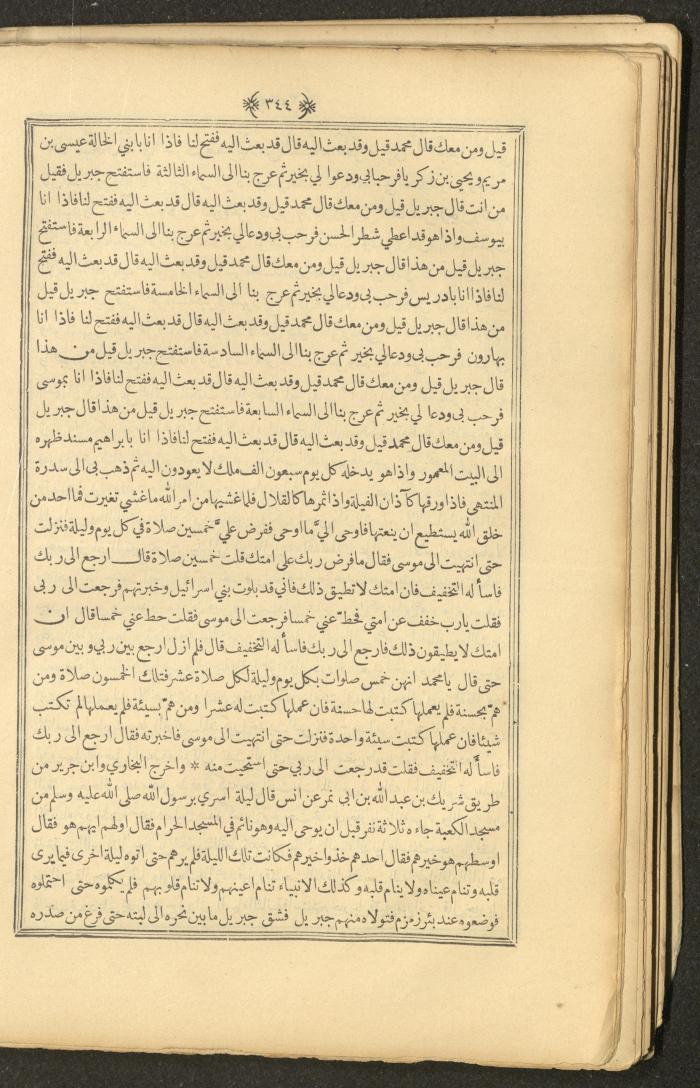 ٣٤٤
قيل ومن معك قال محمد قيل وقد بعث اليه قال قد بعث اليه ففتح لنا فاذا انا بابني الخالة عيسى بن
مريم ويحيى بن زكريا فرحبا بي ودعوا لي بخير ثم عرج بنا الى السماء الثالثة فاستفتح جبريل فقيل
من انت قال جبريل قيل ومن معك قال محمد قيل وقد بعث اليه قال قد بعث اليه ففتح لنا فاذا انا
بيوسف واذا هو قد اعطي شطر الحسن فرحب بي ودعا لي بخير ثم عرج بنا الى السماء الرابعة فاستفتح
جبريل قيل من هذا قال جبريل قيل ومن معك قال محمد قيل وقد بعث اليه قال قد بعث اليه ففتح
لنا فاذا انا بادريس فرحب بي ودعا لي بخير ثم عرج بنا الى السماء الخامسة فاستفتح جبريل قيل
من هذا قال جبريل قيل ومن معك قال محمد قيل وقد بعث اليه قال قد بعث اليه ففتح لنا فاذا انا
بهارون فرحب بي ودعا لي بخير ثم عرج بنا الى السماء السادسة فاستفتح جبريل قيل من هذا
قال جبريل قيل ومن معك قال محمد قيل وقد بعث اليه قال قد بعث اليه ففتح لنا فاذا انا بموسى
فرحب بي ودعا لي بخير ثم عرج بنا الى السماء السابعة فاستفتح جبريل قيل من هذا قال جبريل
قيل ومن معك قال محمد قيل وقد بعث اليه قال قد بعث اليه ففتح لنا فاذا انا بابراهيم مسند ظهره
الى البيت المعمور واذا هو يدخله كل يوم سبعون الف ملك لا يعودون اليه ثم ذهب بي الى سدرة
المنتهى فاذا ورقها كآذان الفيلة واذا ثمرها كالقلال فلما غشيها من امر الله ما غشي تغيرت فما احد من
خلق الله يستطيع ان ينعتها فاوحى اليّ ما اوحى ففرض عليّ خمسين صلاة في كل يوم وليلة فنزلت
حتى انتهيت الى موسى فقال ما فرض ربك على امتك قلت خمسين صلاة قال ارجع الى ربك
فاسأله التخفيف فان امتك لا تطيق ذلك فاني قد بلوت بني اسرائيل وخبرتهم فرجعت الى ربي
فقلت يارب خفف عن امتي فحطّ عني خمسا فرجعت الى موسى فقلت حط عني خمسا قال ان
امتك لا يطيقون ذلك فارجع الى ربك فاسأله التخفيف قال فلم ازل ارجع بين ربي وبين موسى
حتى قال يا محمد انهن خمس صلوات بكل يوم وليلة لكل صلاة عشر فتلك الخمسون صلاة ومن
همّ بحسنة فلم يعملها كتبت لها حسنة فان عملها كتبت له عشرا ومن همّ بسيئة فلم يعملها لم تكتب
شيئا فان عملها كتبت سيئة واحدة فنزلت حتى انتهيت الى موسى فاخبرته فقال ارجع الى ربك
فاسأله التخفيف فقلت قد رجعت الى ربي حتى استحيت منه * واخرج البخاري وابن جرير من
طريق شريك بن عبد الله بن ابي نمر عن انس قال ليلة اسري برسول الله صلى الله عليه وسلم من
مسجد الكعبة جاءه ثلاثة نفر قبل ان يوحى اليه وهو نائم في المسجد الحرام فقال اولهم ايهم هو فقال
اوسطهم هو خيرهم فقال احدهم خذوا خيرهم فكانت تلك الليلة فلم يرهم حتى اتوه ليلة اخرى فيما يرى
قلبه وتنام عيناه ولا ينام قلبه وكذلك الانبياء تنام اعينهم ولا تنام قلوبهم فلم يكلموه حتى احتملوه
فوضعوه عند بئر زمزم فتولاه منهم جبريل فشق جبريل ما بين نحره الى لبته حتى فرغ من صدره